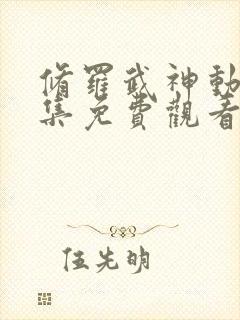 脩羅武神動
集免費觀看
伍先明